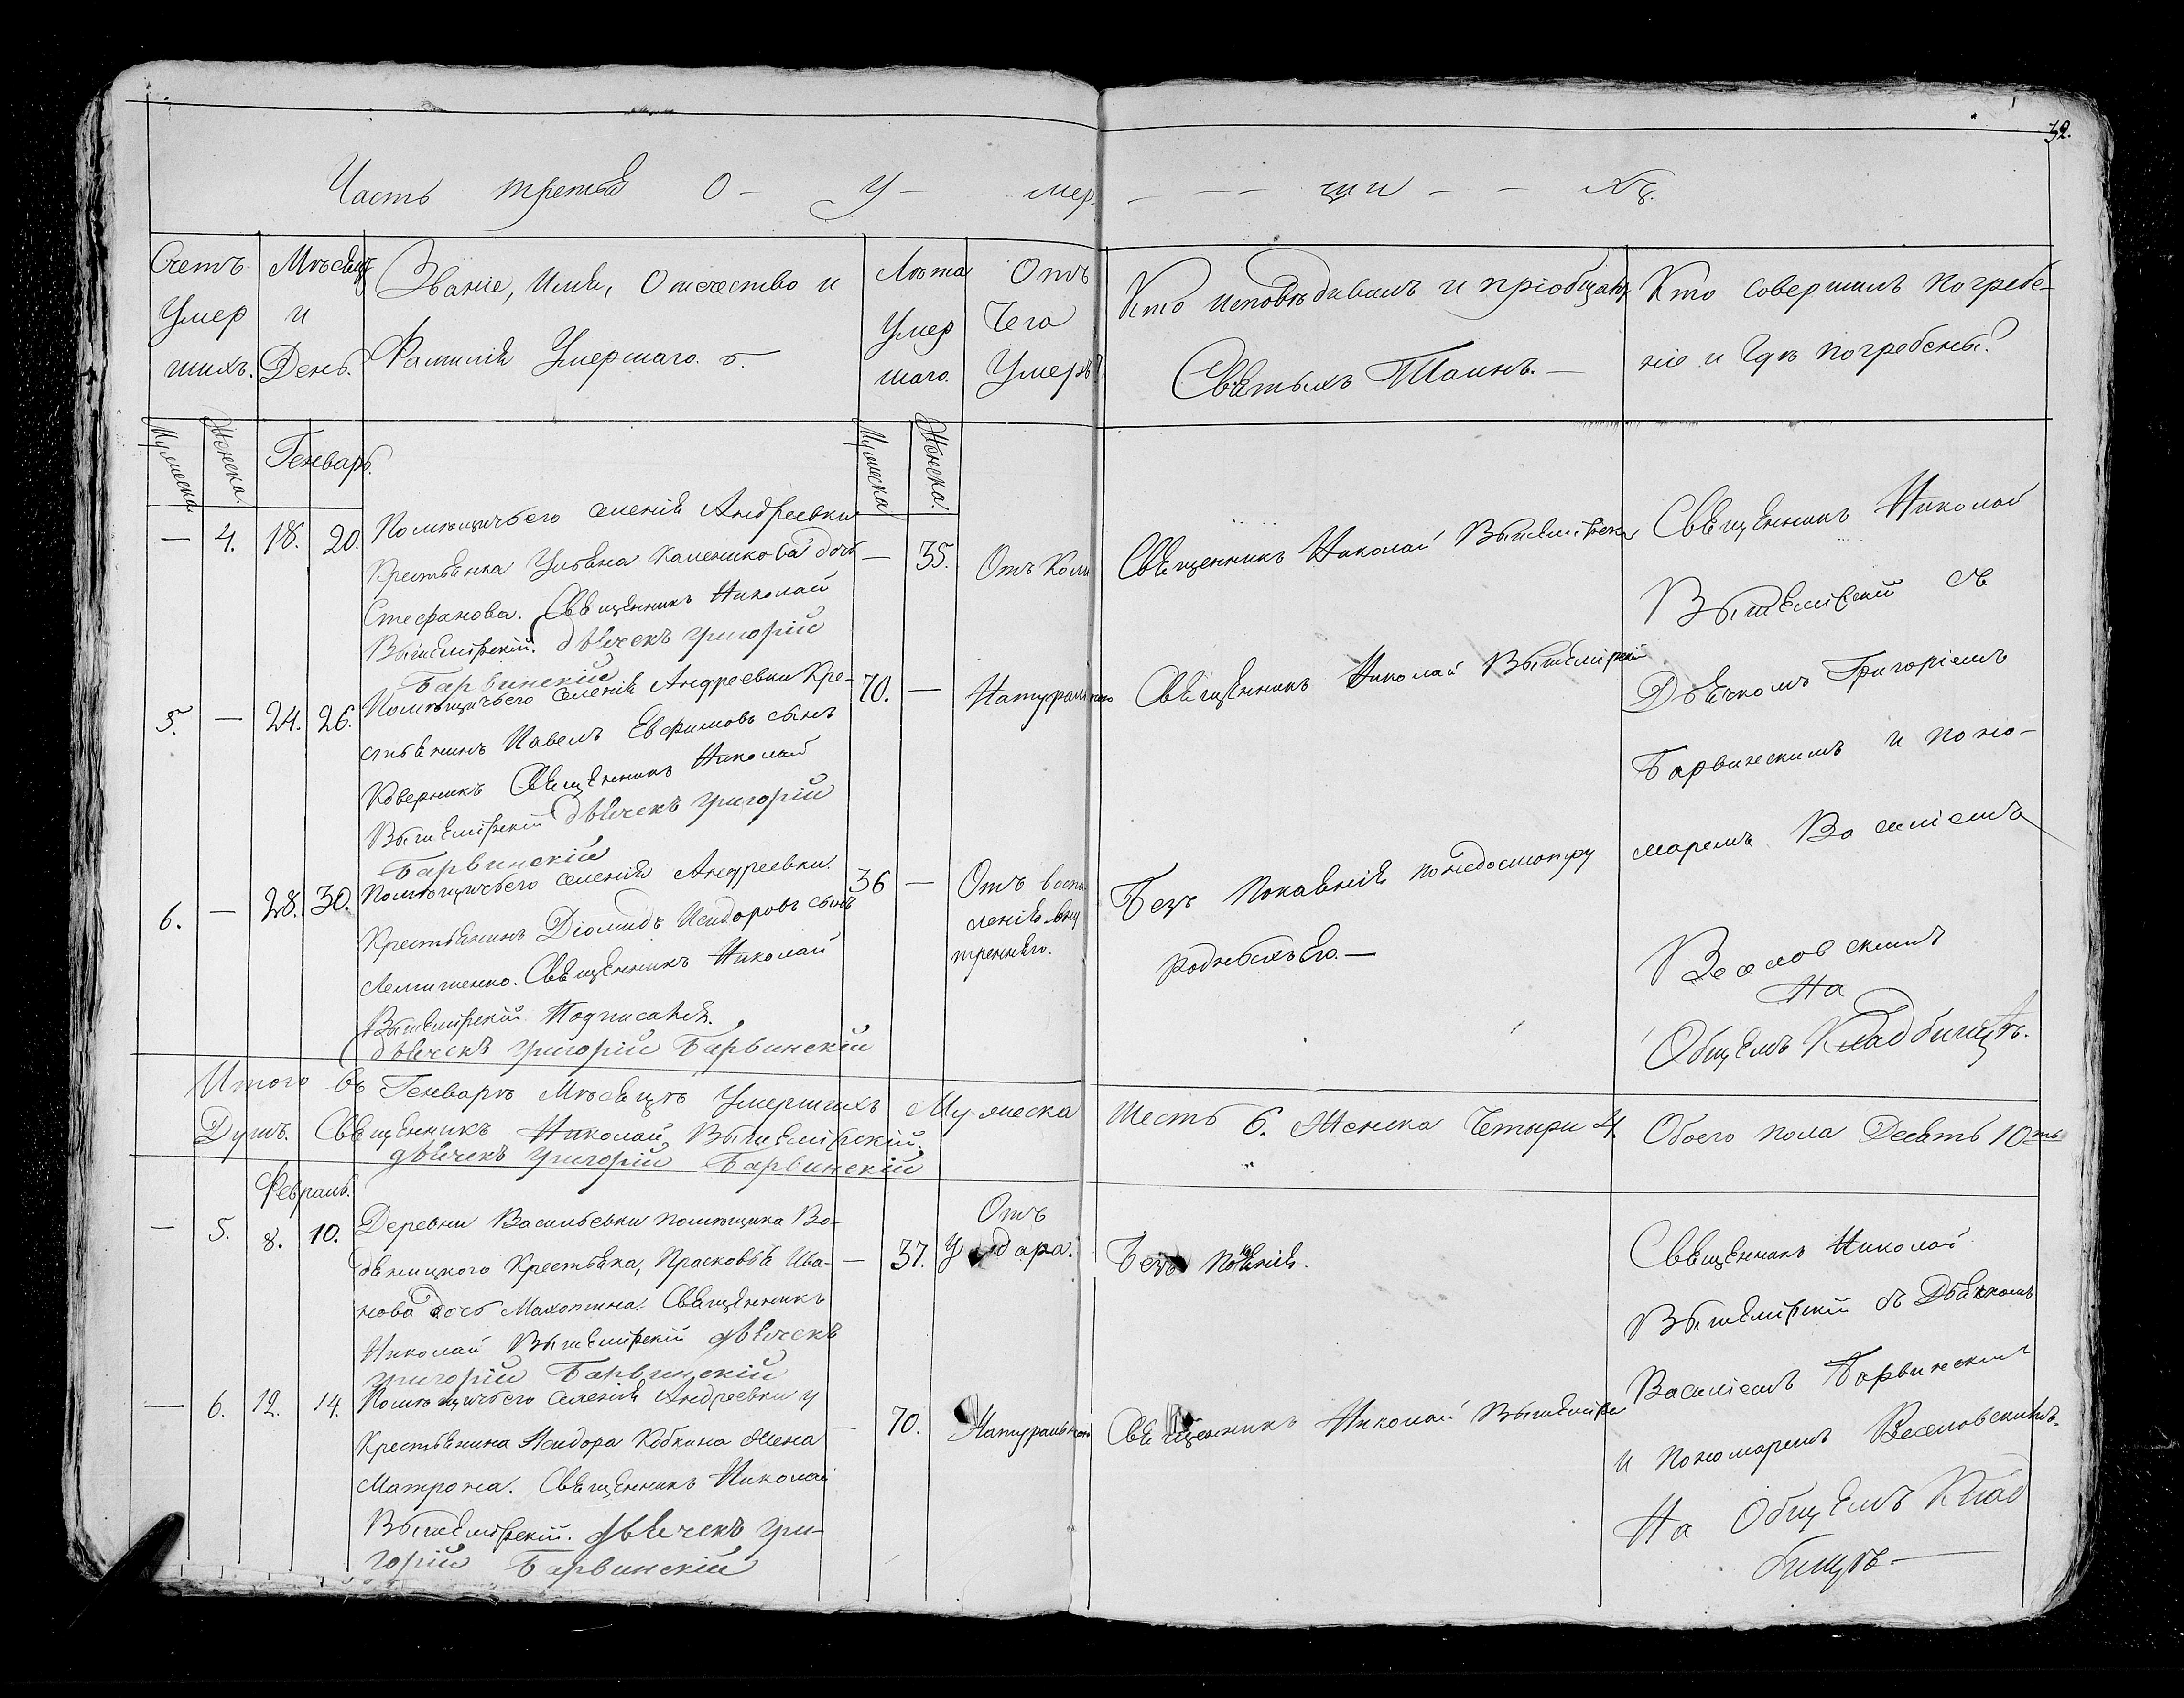 32.
Часть третья О – У – мер – – – ши – – хъ.
Счетъ
Умер
шихъ.
Мѣсяцъ
и
День.
Званіе, Имя, Отечество и
Фамилія Умершаго.
Лѣта
Умер
шаго.
Отъ
Чего
Умеръ?
Кто исповѣдывалъ и пріобщалъ
Святыхъ Таинъ. —
Кто совершалъ погребе-
ніе и Гдѣ погребены?
Мужеска
Женска.
Генварь.
Мужеска
Женска.
— 4. 18. 20.
Помѣщичьего имѣнія Андреевки
Крестьянка Ульяна Каленикова дочь
Стефанова. Священникъ Николай
Вышемірскій. Дьячекъ Григорій
Барвинскій
— 35.
Отъ Коли
Священникъ Николай Вышемірскій
5. — 24. 26.
Помѣщичьего имѣнія Андреевки Кре-
стьянинъ Павелъ Евфимовъ сынъ
Коверникъ Священникъ Николай
Вышемірскій Дьячекъ Григорій
Барвинскій
70. —
Натурально
Священникъ Николай Вышемірскій
6. — 28. 30.
Помѣщичьего имѣнія Андреевки.
Крестьянинъ Діомидъ Исидоровъ сынъ
Священникъ Николай
Вышемірскій Подписался.
Дьячекъ Григорій Барвинскій
36 —
Отъ воспа
ленія вну
тренняго.
Безъ Покаянія понедосмотру
родныхъ Его. —
Священникъ Николай
Вышемірскій съ
Дьячкомъ Григоріемъ
Барвинскимъ и поно-
маремъ Василіемъ
Веселовскимъ
На
Общемъ Кладбищѣ.
Итого Въ Генварѣ Мѣсяцѣ Умершихъ Мужеска Шесть 6. Женска Четыри 4. Обоего пола Десять 10ть
Душъ. Священникъ Николай Вышемірскій.
Дьячекъ Григорій Барвинскій
Февраль.
— 5. 8. 10.
Деревни Васильевки помѣщика Во-
дяницкого Крестьянка, Прасковья Ива-
нова дочь Махотина. Священникъ
Николай Вышемірскій Дьячекъ
Григорій Барвинскій
— 37.
Отъ
Удара.
Безъ Покаянія.
— 6. 12. 14.
Помѣщичьего имѣнія Андреевки у
Крестьянина Исидора Кобкина Жена
Матрона. Священникъ Николай
Вышемірскій. Дьячекъ Гри-
горій Барвинскій
— 70.
Натурально
Священникъ Николай Вышемірскій
Священникъ Николай
Вышемірскій съ Дьячкомъ
Василіемъ Барвинскимъ
и Пономаремъ Веселовскимъ.
На Общемъ Клад
бищѣ —